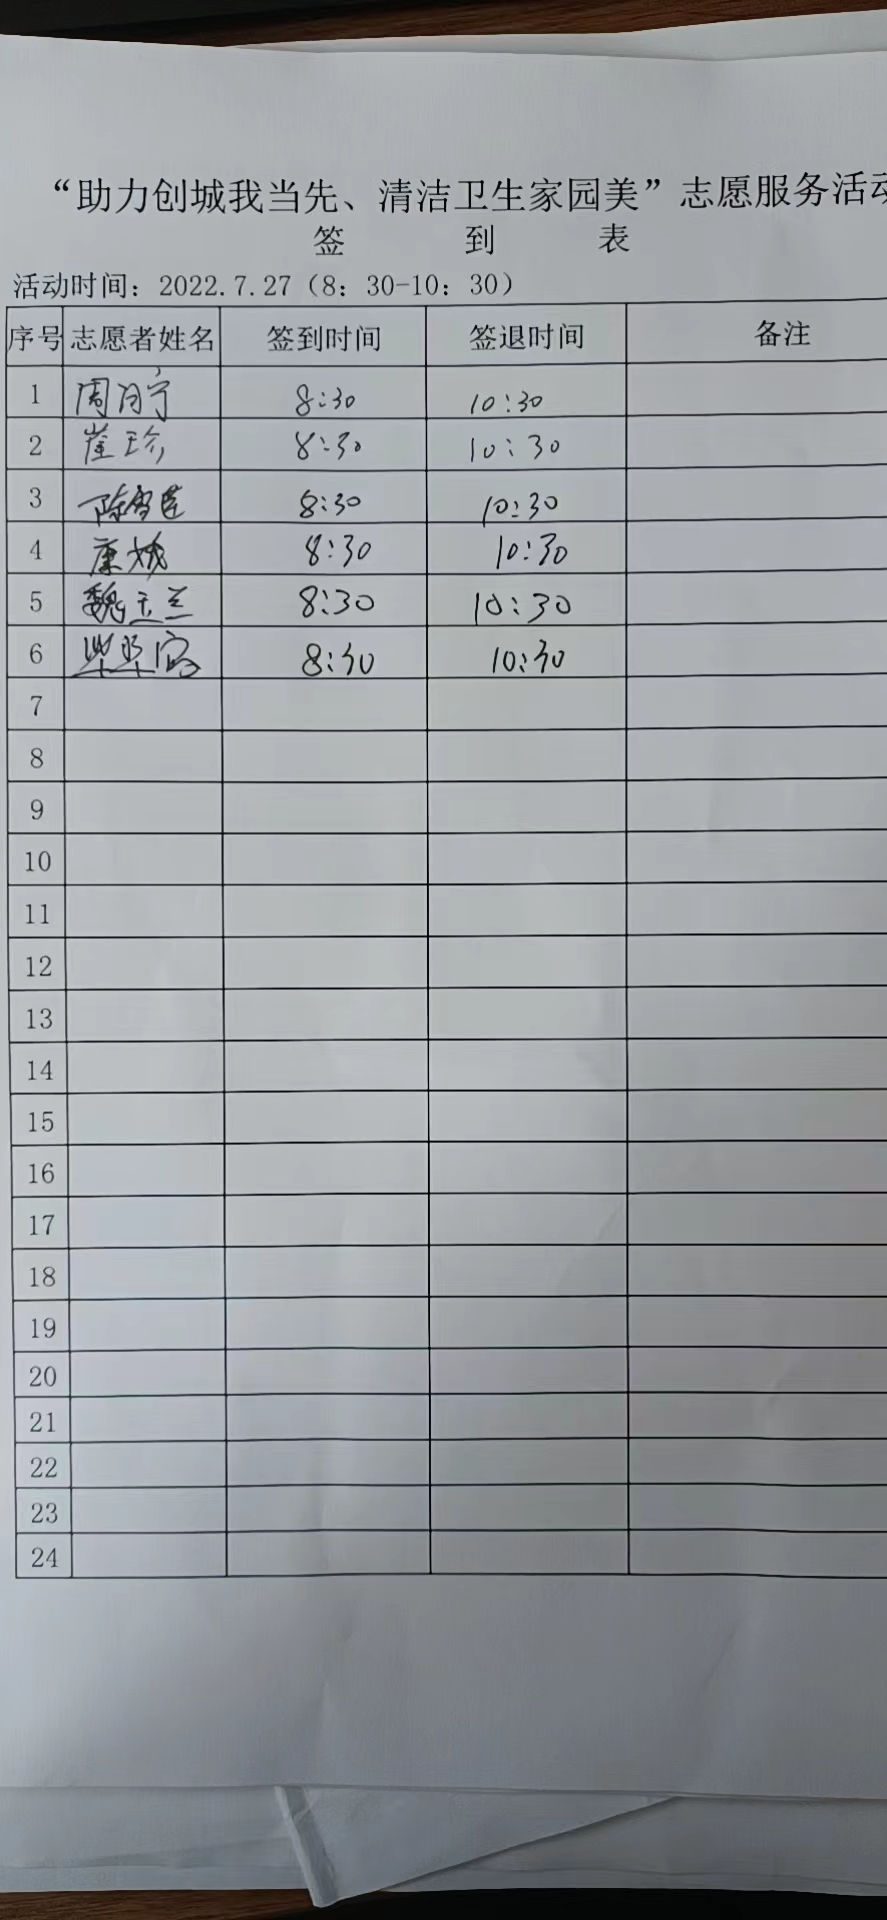 “助力创城我当先、清洁卫生家园美”志愿服务活动
签 到 表
活动时间：2022.7.27（8：30-10：30）
序号 志愿者姓名 签到时间 签退时间 备注
1 周月宁 8:30 10:30
2 崔珍 8:30 10:30
3 陈雪莲 8:30 10:30
4 康城 8:30 10:30
5 魏玉兰 8:30 10:30
6 8:30 10:30
7
8
9
10
11
12
13
14
15
16
17
18
19
20
21
22
23
24